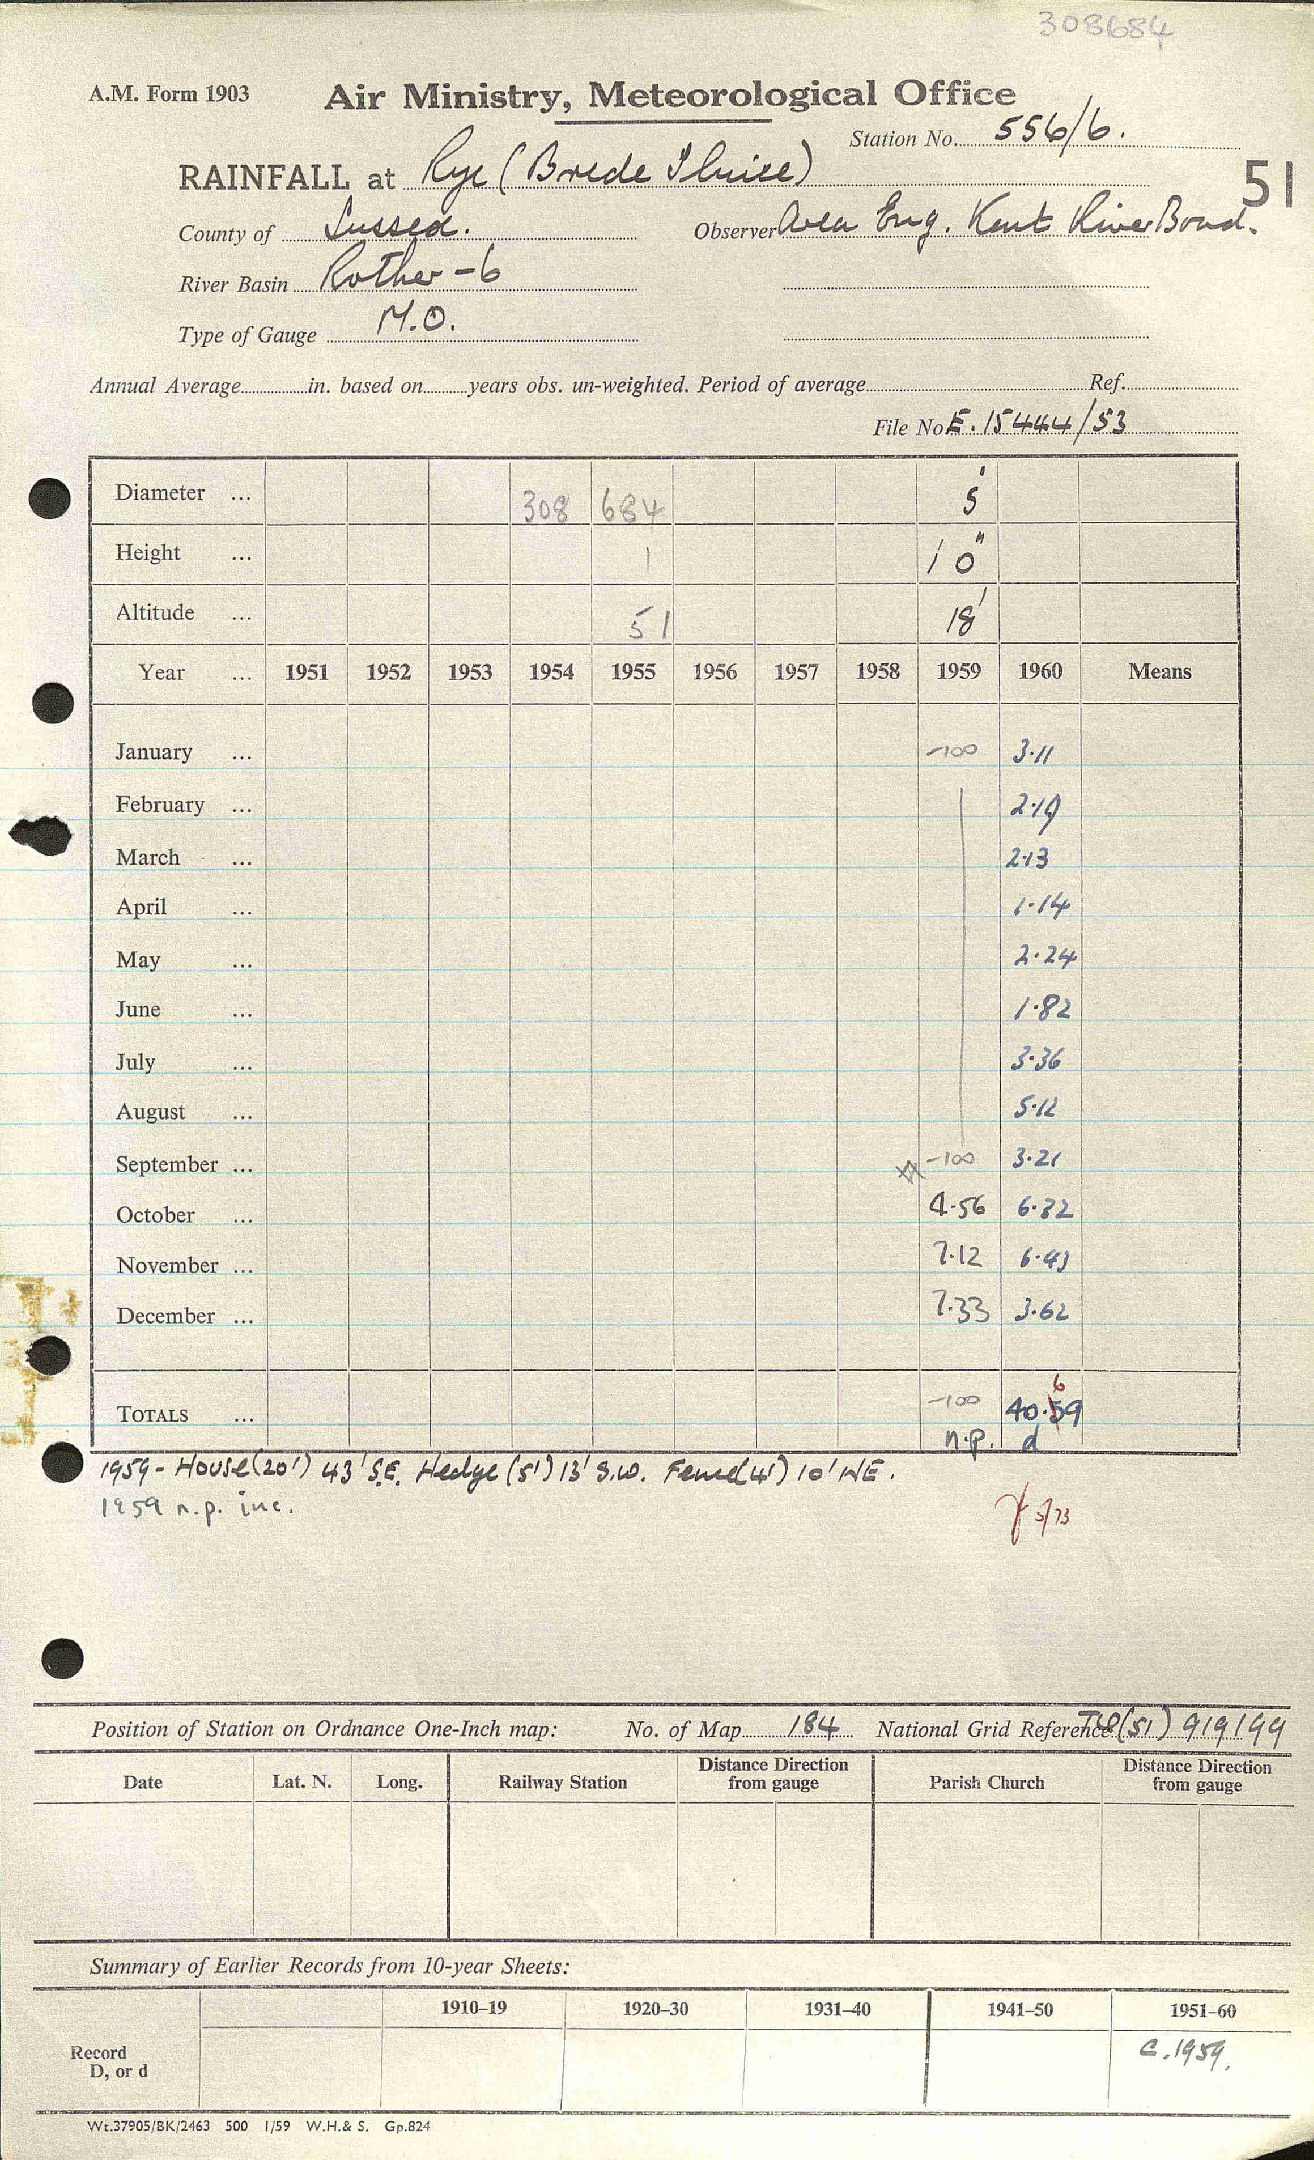 308684
A.M. Form 1903 Air Ministry, Meteorological Office
Station No. 556/6.
RAINFALL at Rye (Brede Sluice) 51
County of Sussex. Observer Area Eng. Kent River Board.
River Basin Rother-6
Type of Gauge M.O.
Annual Average in. based on years obs. un-weighted. Period of average Ref.
File No E.15444/53
Diameter ... 308 684 5"
Height ... 1 1' 0"
Altitude ... 51 18'
Year ... 1951 1952 1953 1954 1955 1956 1957 1958 1959 1960 Means
January ... -100 3.11
February ... 2.19
March ... 2.13
April ... 1.14
May ... 2.24
June ... 1.82
July ... 3.36
August ... 5.12
September ... -100 3.21
October ... 4.56 6.32
November ... 7.12 6.43
December ... 7.33 3.62
6
TOTALS ... -100 40.59
n.p. d
1959 - House (20') 43' S.E. Hedge (5') 13' S.W. Fence (4') 10' NE.
1959 n.p. inc.
5/73
Position of Station on Ordnance One-Inch map: No. of Map 184 National Grid Reference TQ(51) 919199
Date Lat. N. Long. Railway Station Distance Direction from gauge Parish Church Distance Direction from gauge
Summary of Earlier Records from 10-year Sheets:
1910-19 1920-30 1931-40 1941-50 1951-60
Record
D, or d
C.1959.
Wt.37905/BK/2463 500 1/59 W.H.& S. Gp.824